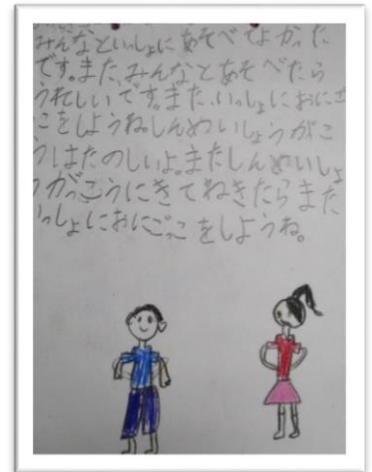 みんなといっしょにあそべてよかった
です。また、みんなとあそべたら
うれしいです。また、いっしょにおにご
こをしようね。しんめいしょうがこ
うはたのしいよ。またしんめいしょ
うがっこうにきてねきたらまた
いっしょにおにごっこをしようね。